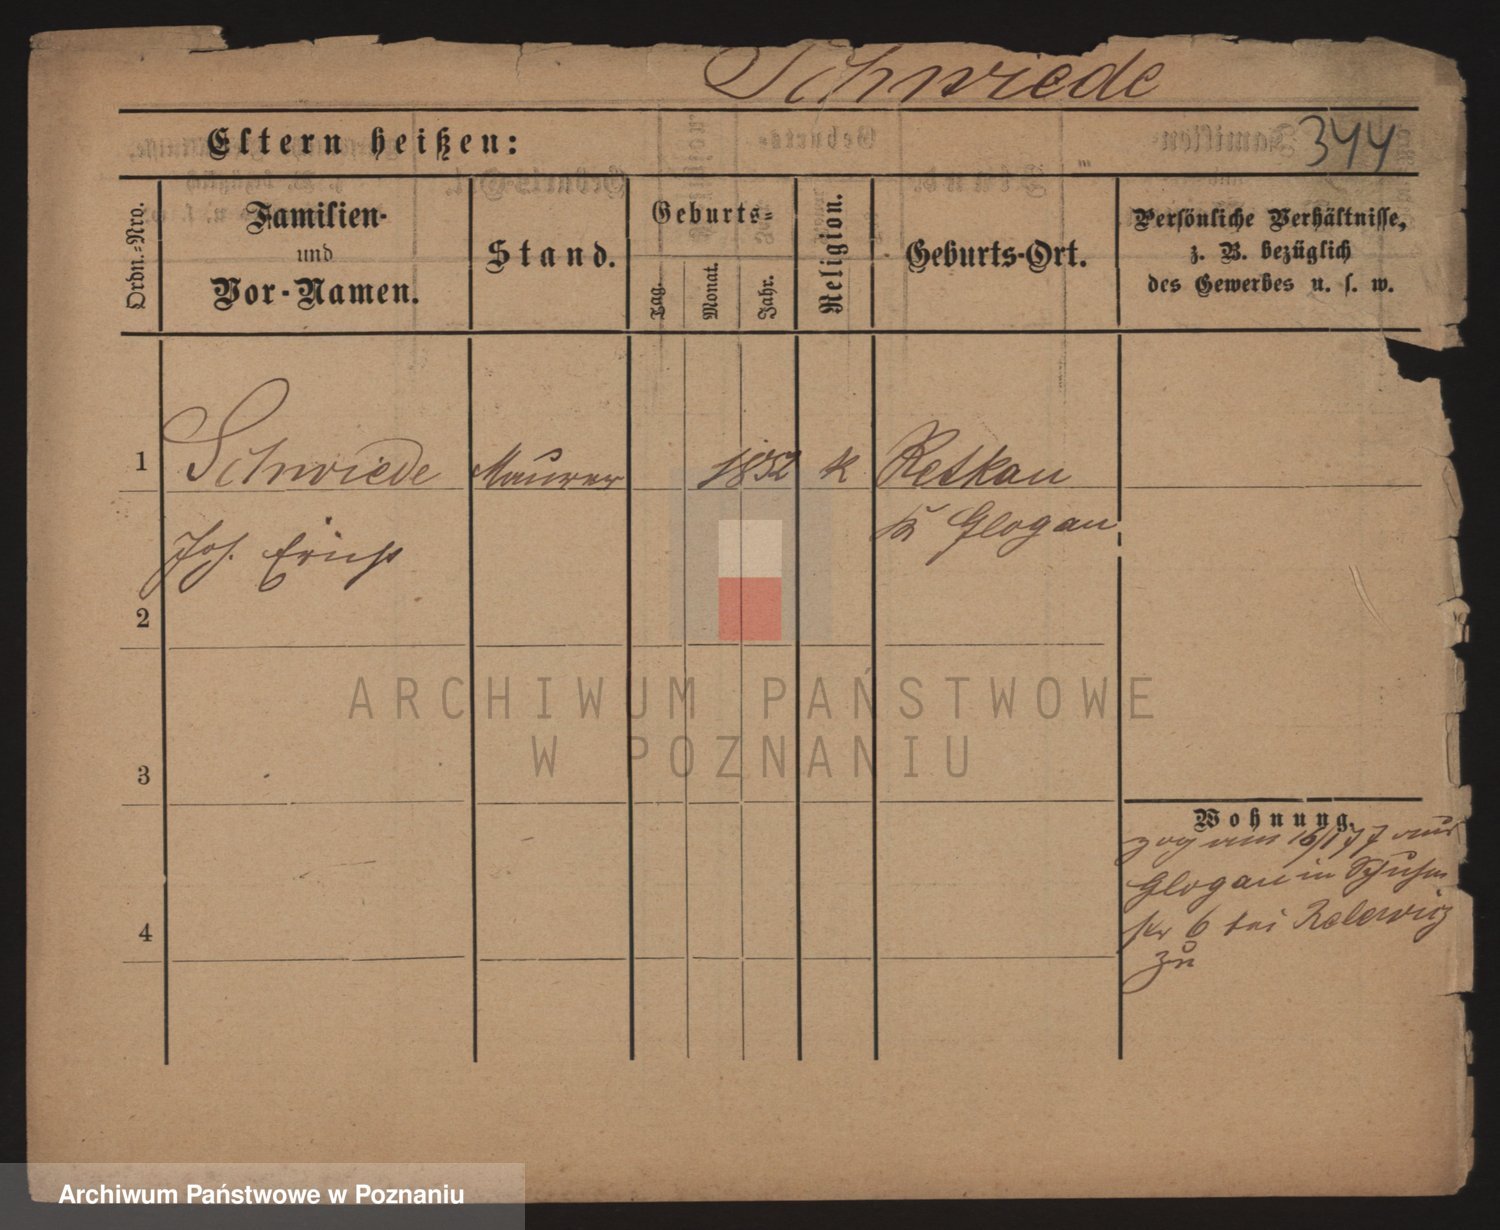 Schwiede
Eltern heißen:
344
Ordn.-Nro.
Familien-
und
Vor-Namen.
Stand.
Geburts-
Tag.
Monat.
Jahr.
Religion.
Geburts-Ort.
Persönliche Verhältnisse,
z. B. bezüglich
des Gewerbes u. s. w.
1
Schwiede
Maurer
1852
k
Retkau
Joh.
Glogau
2
ARCHIWUM PAŃSTWOWE
W POZNANIU
3
Wohnung.
zog am 16/1 77 aus
Glogau in
6 bei
zu
4
Archiwum Państwowe w Poznaniu